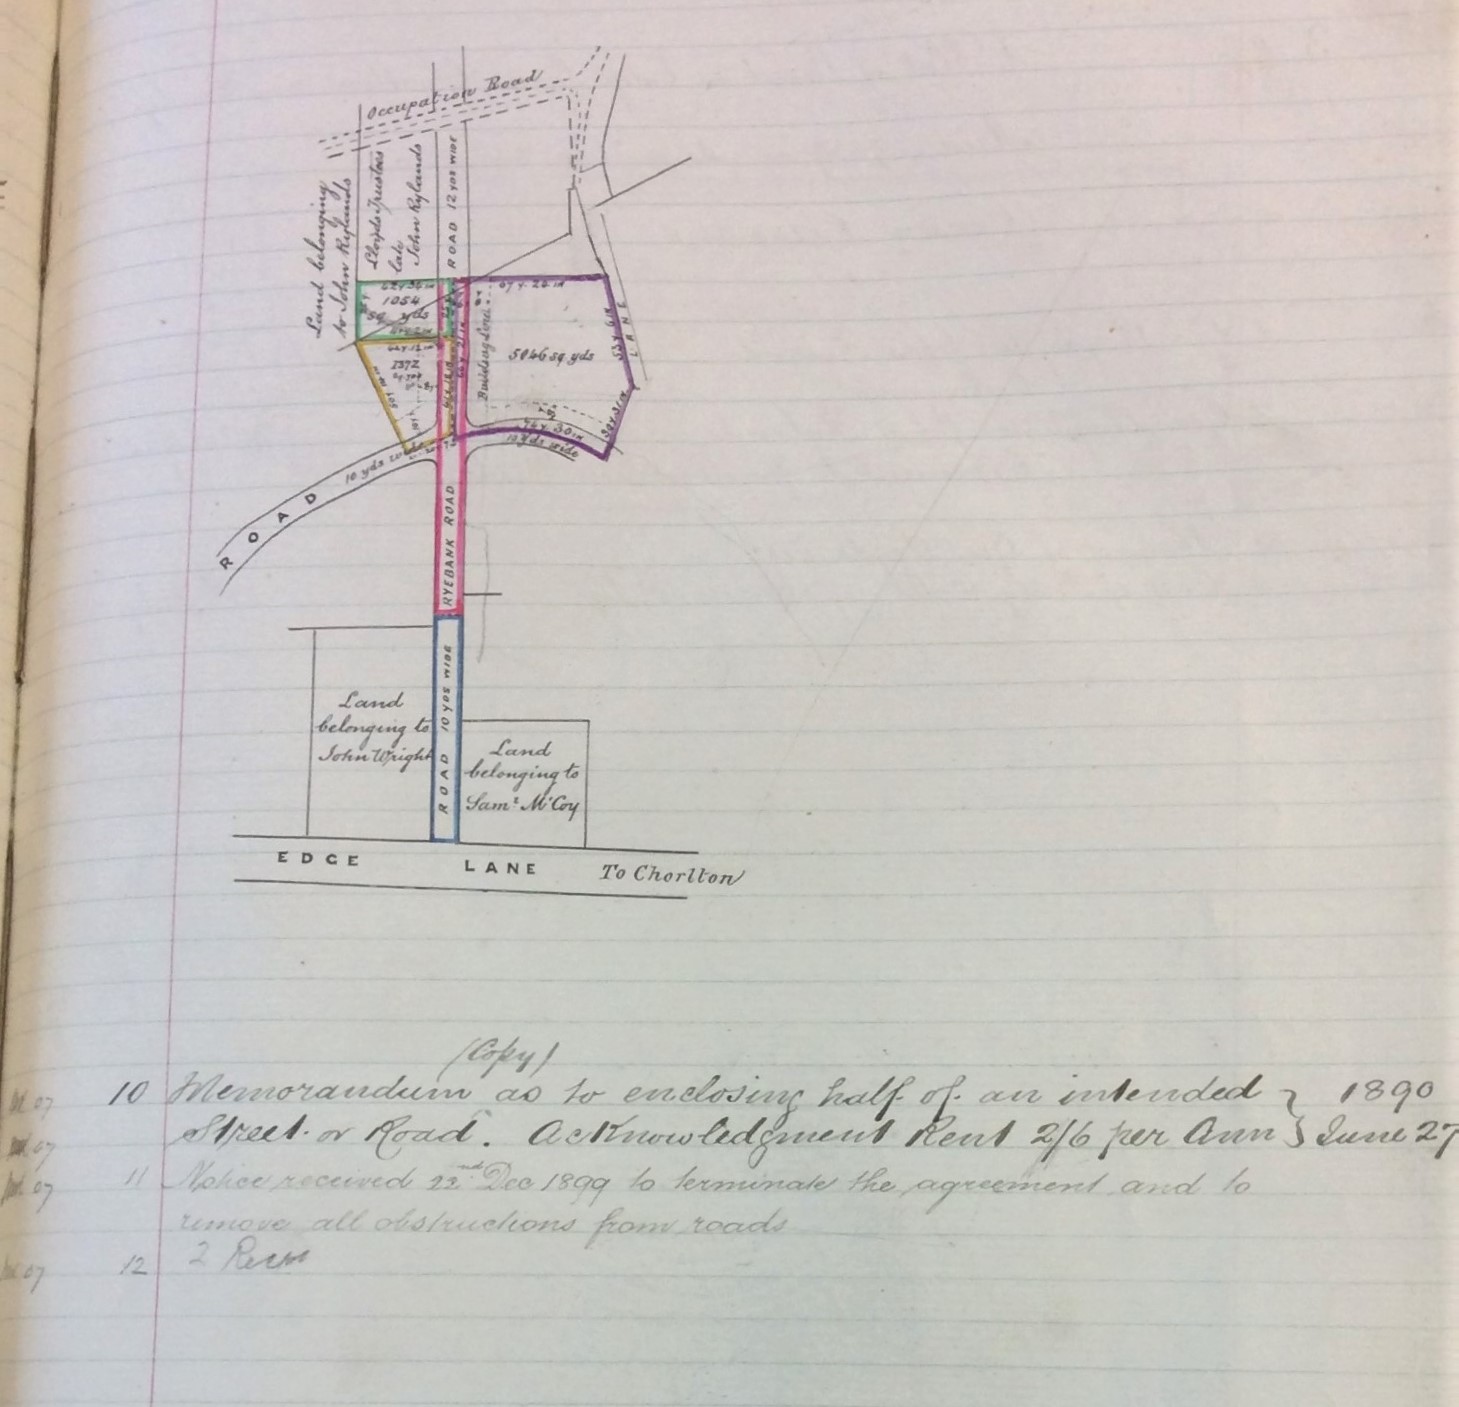 Occupation Road
Land belonging
to John Rylands
Lloyds Trustees
late
John Rylands
ROAD 12 YDS WIDE
1054
sq yds
67 y. 24 in
Building Line
5046 sq. yds
LANE
76 y. 30 in
10 yds wide
ROAD 10 yds wide
RYEBANK ROAD
ROAD 10 YDS WIDE
Land
belonging to
John Wright
Land
belonging to
Saml McCoy
EDGE LANE To Chorlton
(Copy)
10 Memorandum as to enclosing half of an intended } 1890
Street or Road. Acknowledgment Rent 2/6 per Ann } June 27
11 Notice received 22nd Dec 1899 to terminate the agreement and to
remove all obstructions from roads
12 2